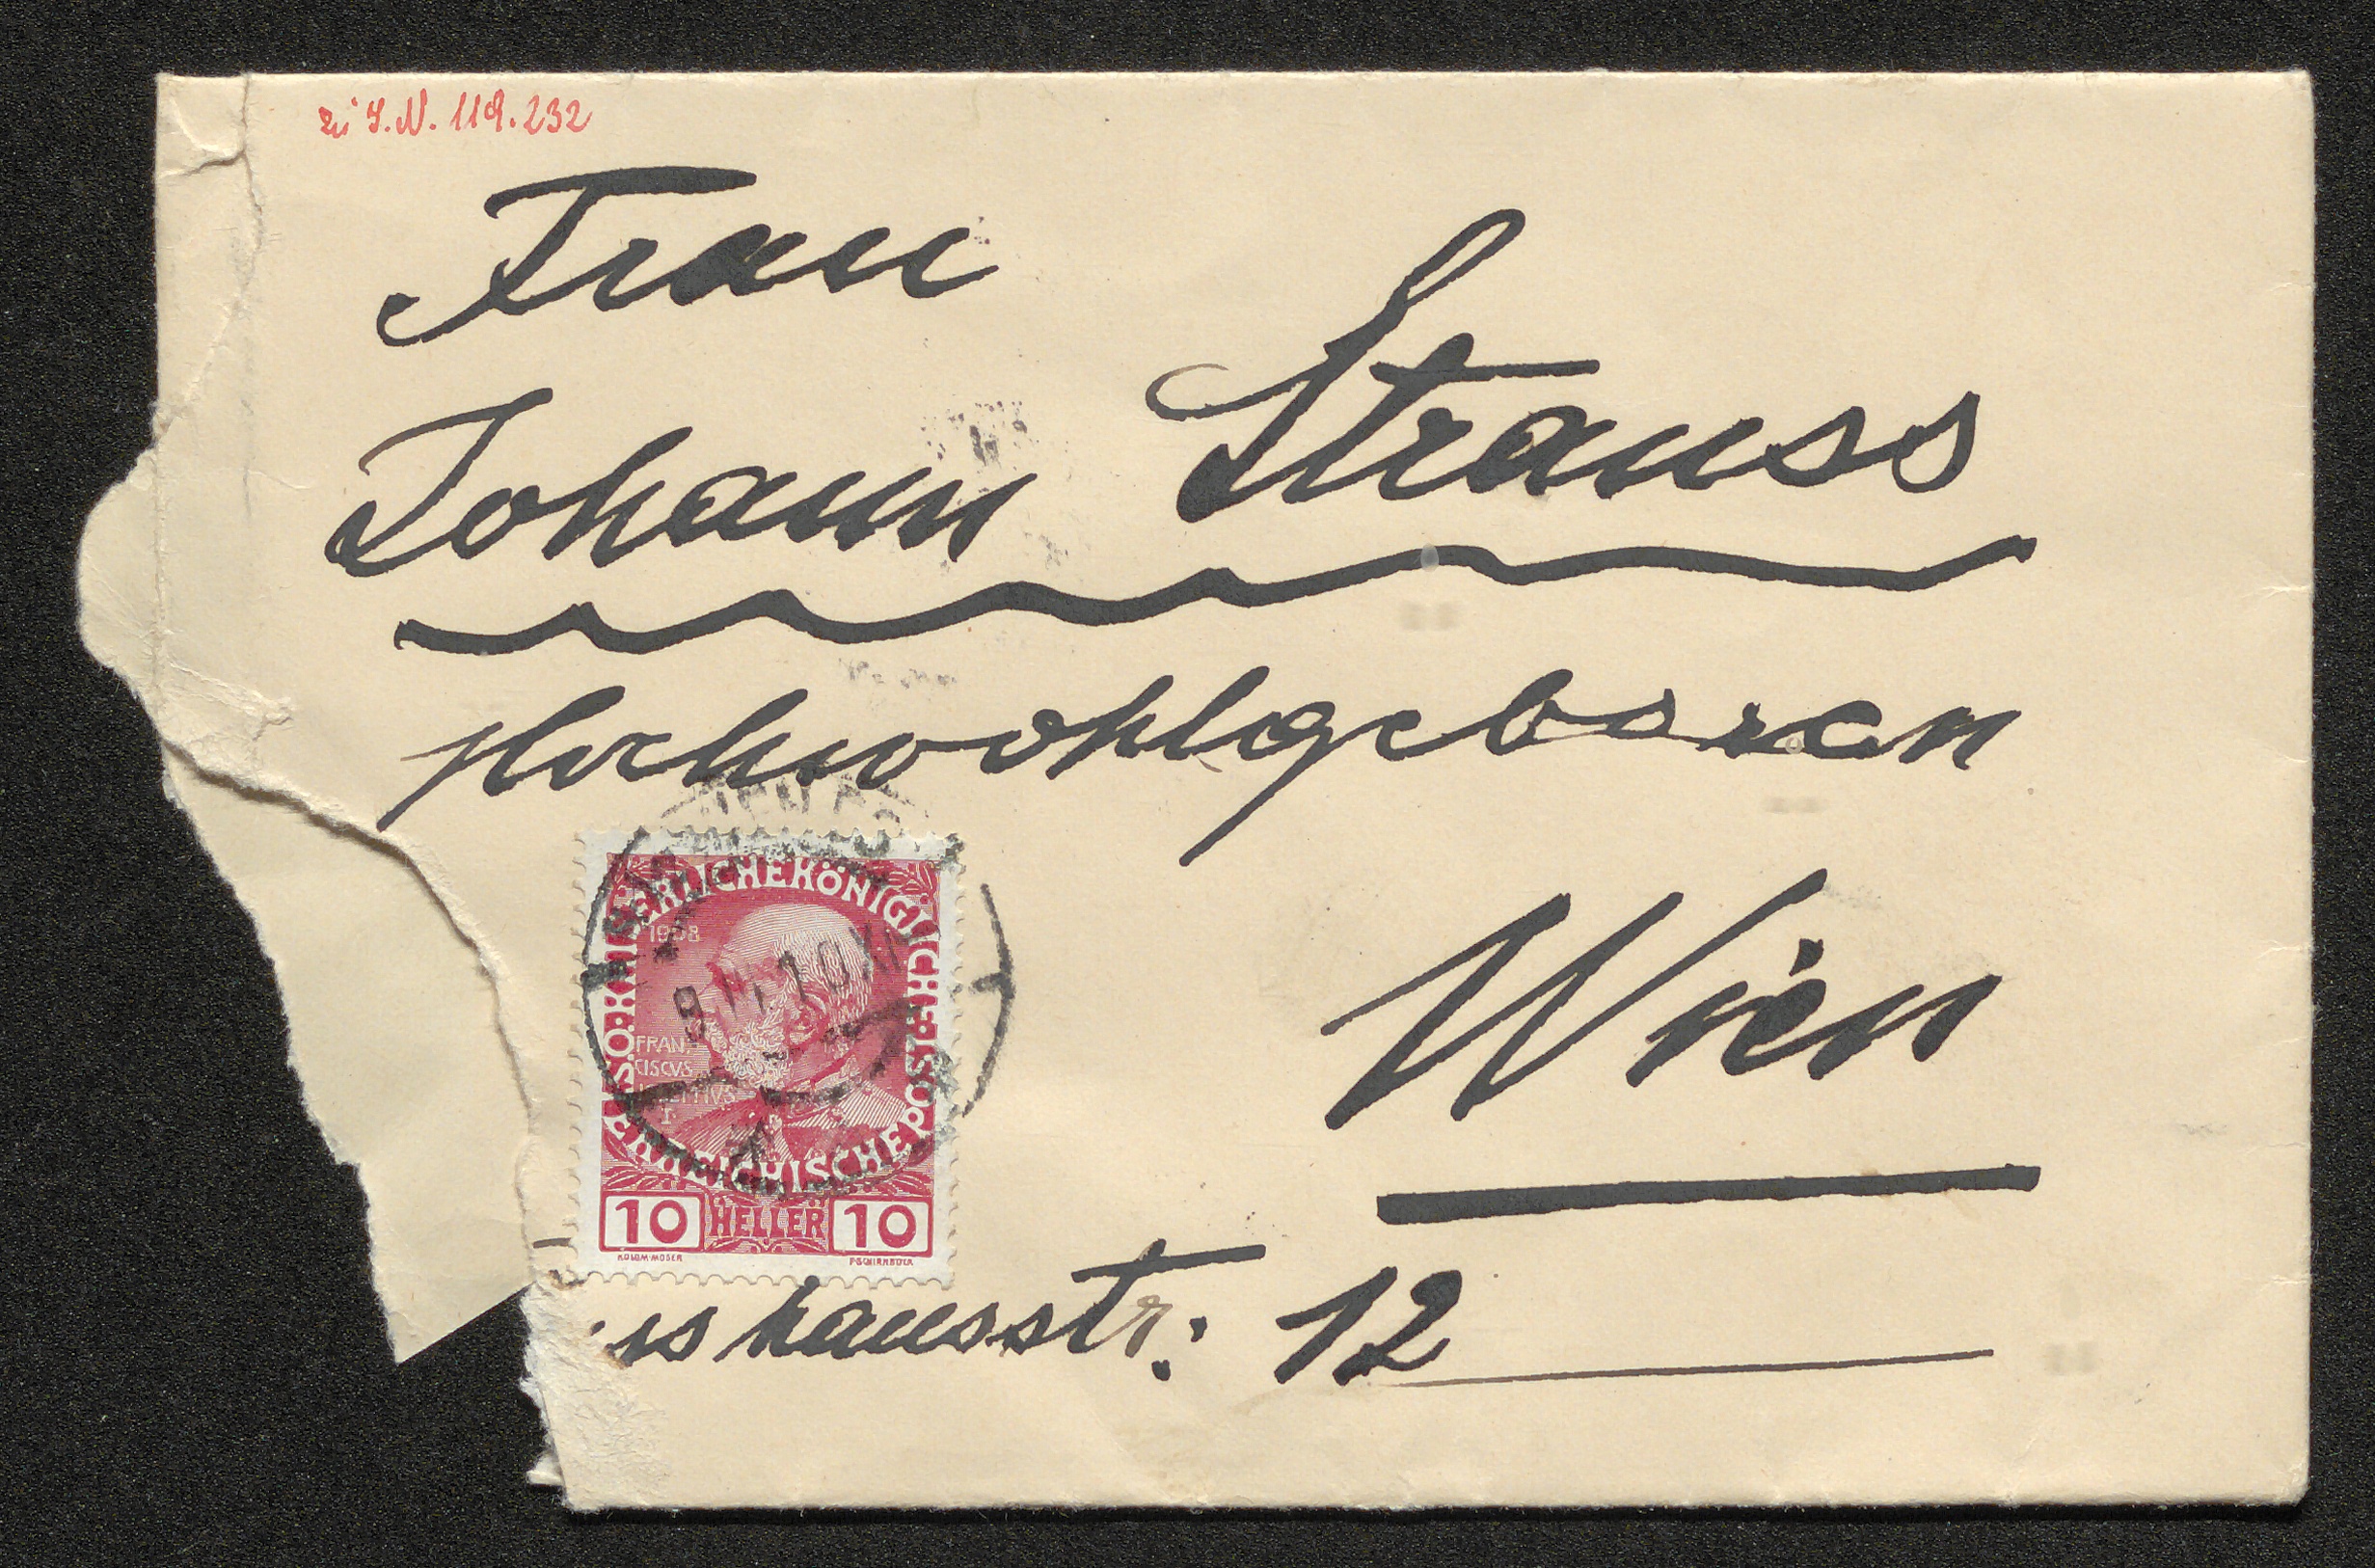 zu I.N. 119.232
Frau
Johann Strauss
Hochwohlgeboren
KAISERLICHE KÖNIGLICHE ÖSTERREICHISCHE POST
1908
9 IV 10 XI
FRAN
CISCVS
I
10 HELLER 10
KOLOM·MOSER
Wien
usshausstr: 12